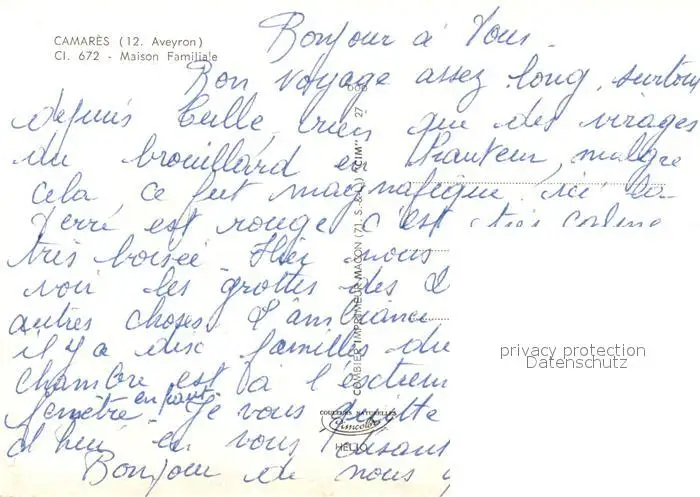 CAMARÈS (12. Aveyron)
Cl. 672 - Maison Familiale
Bonjour à Vous.
Bon voyage assez long, surtout
depuis Tulle, rien que des virages
du brouillard en hauteur, malgré
cela, ce fut magnafique, ici la
terre est rouge c'est très
très boisée Hier nous
voir les grottes des
autres choses L'ambiance
il y a dix familles
chambre est à l'
fenêtre en haut. Je vous quitte
en vous faisant
Bonjour de nous
COMBIER IMPRIMEUR MACON (71. S.-&-L.) "CIM"
COULEURS NATURELLES
HELIO
privacy protection
Datenschutz